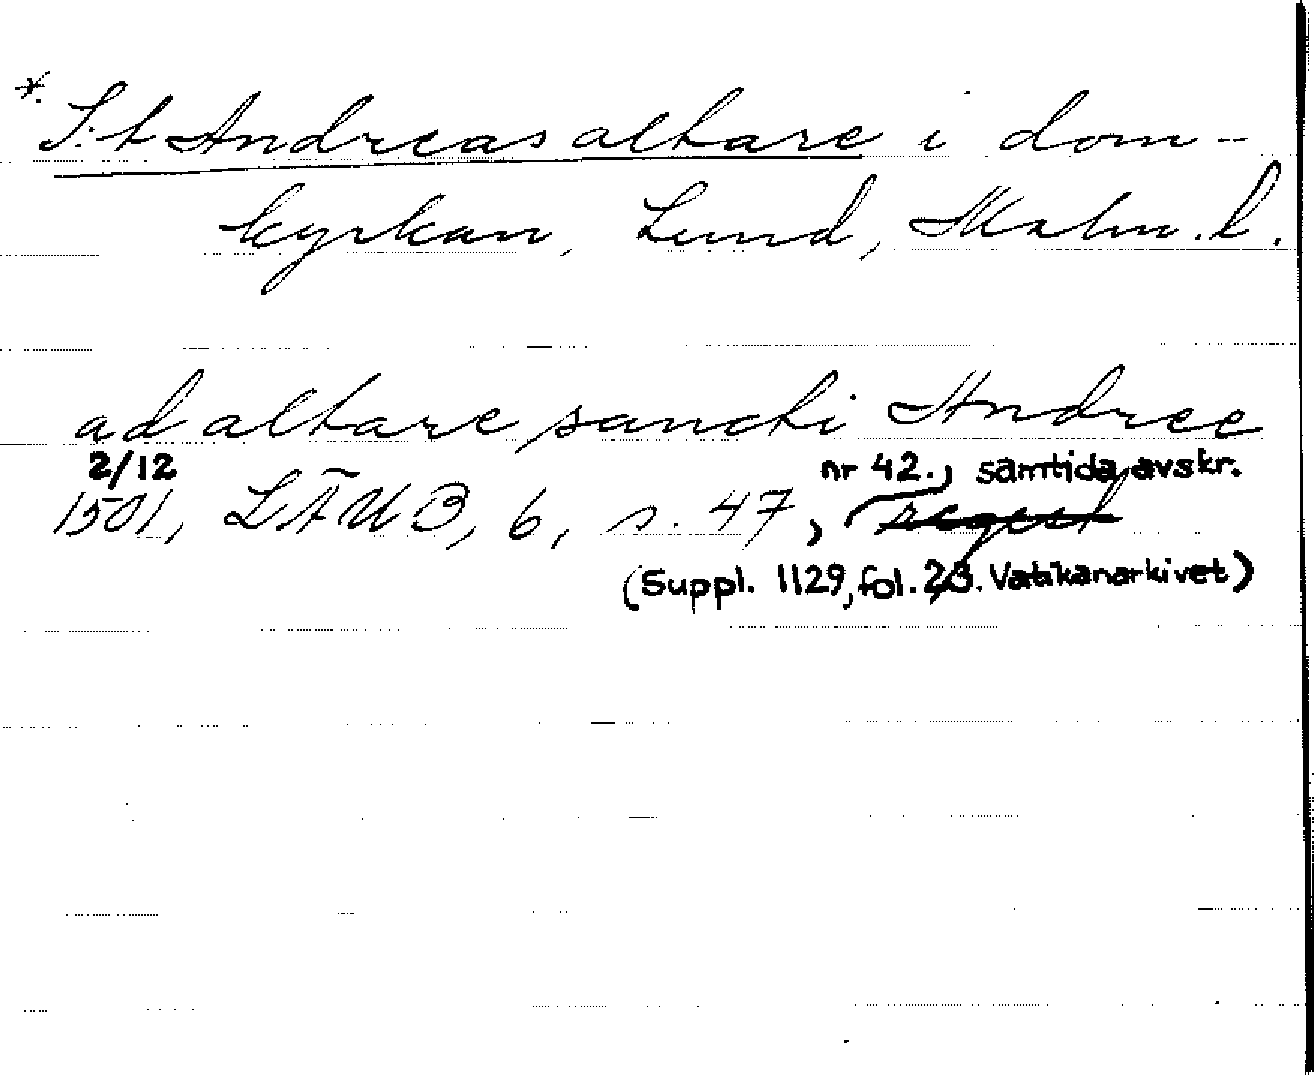 *. S:t Andreas altare i dom-
kyrkan, Lund, Malm. l.
ad altare sancti Andree
2/12 nr 42., samtida avskr.
1501, LÄUB, 6, s. 47, regest
(Suppl. 1129, fol. 23. Vatikanarkivet)